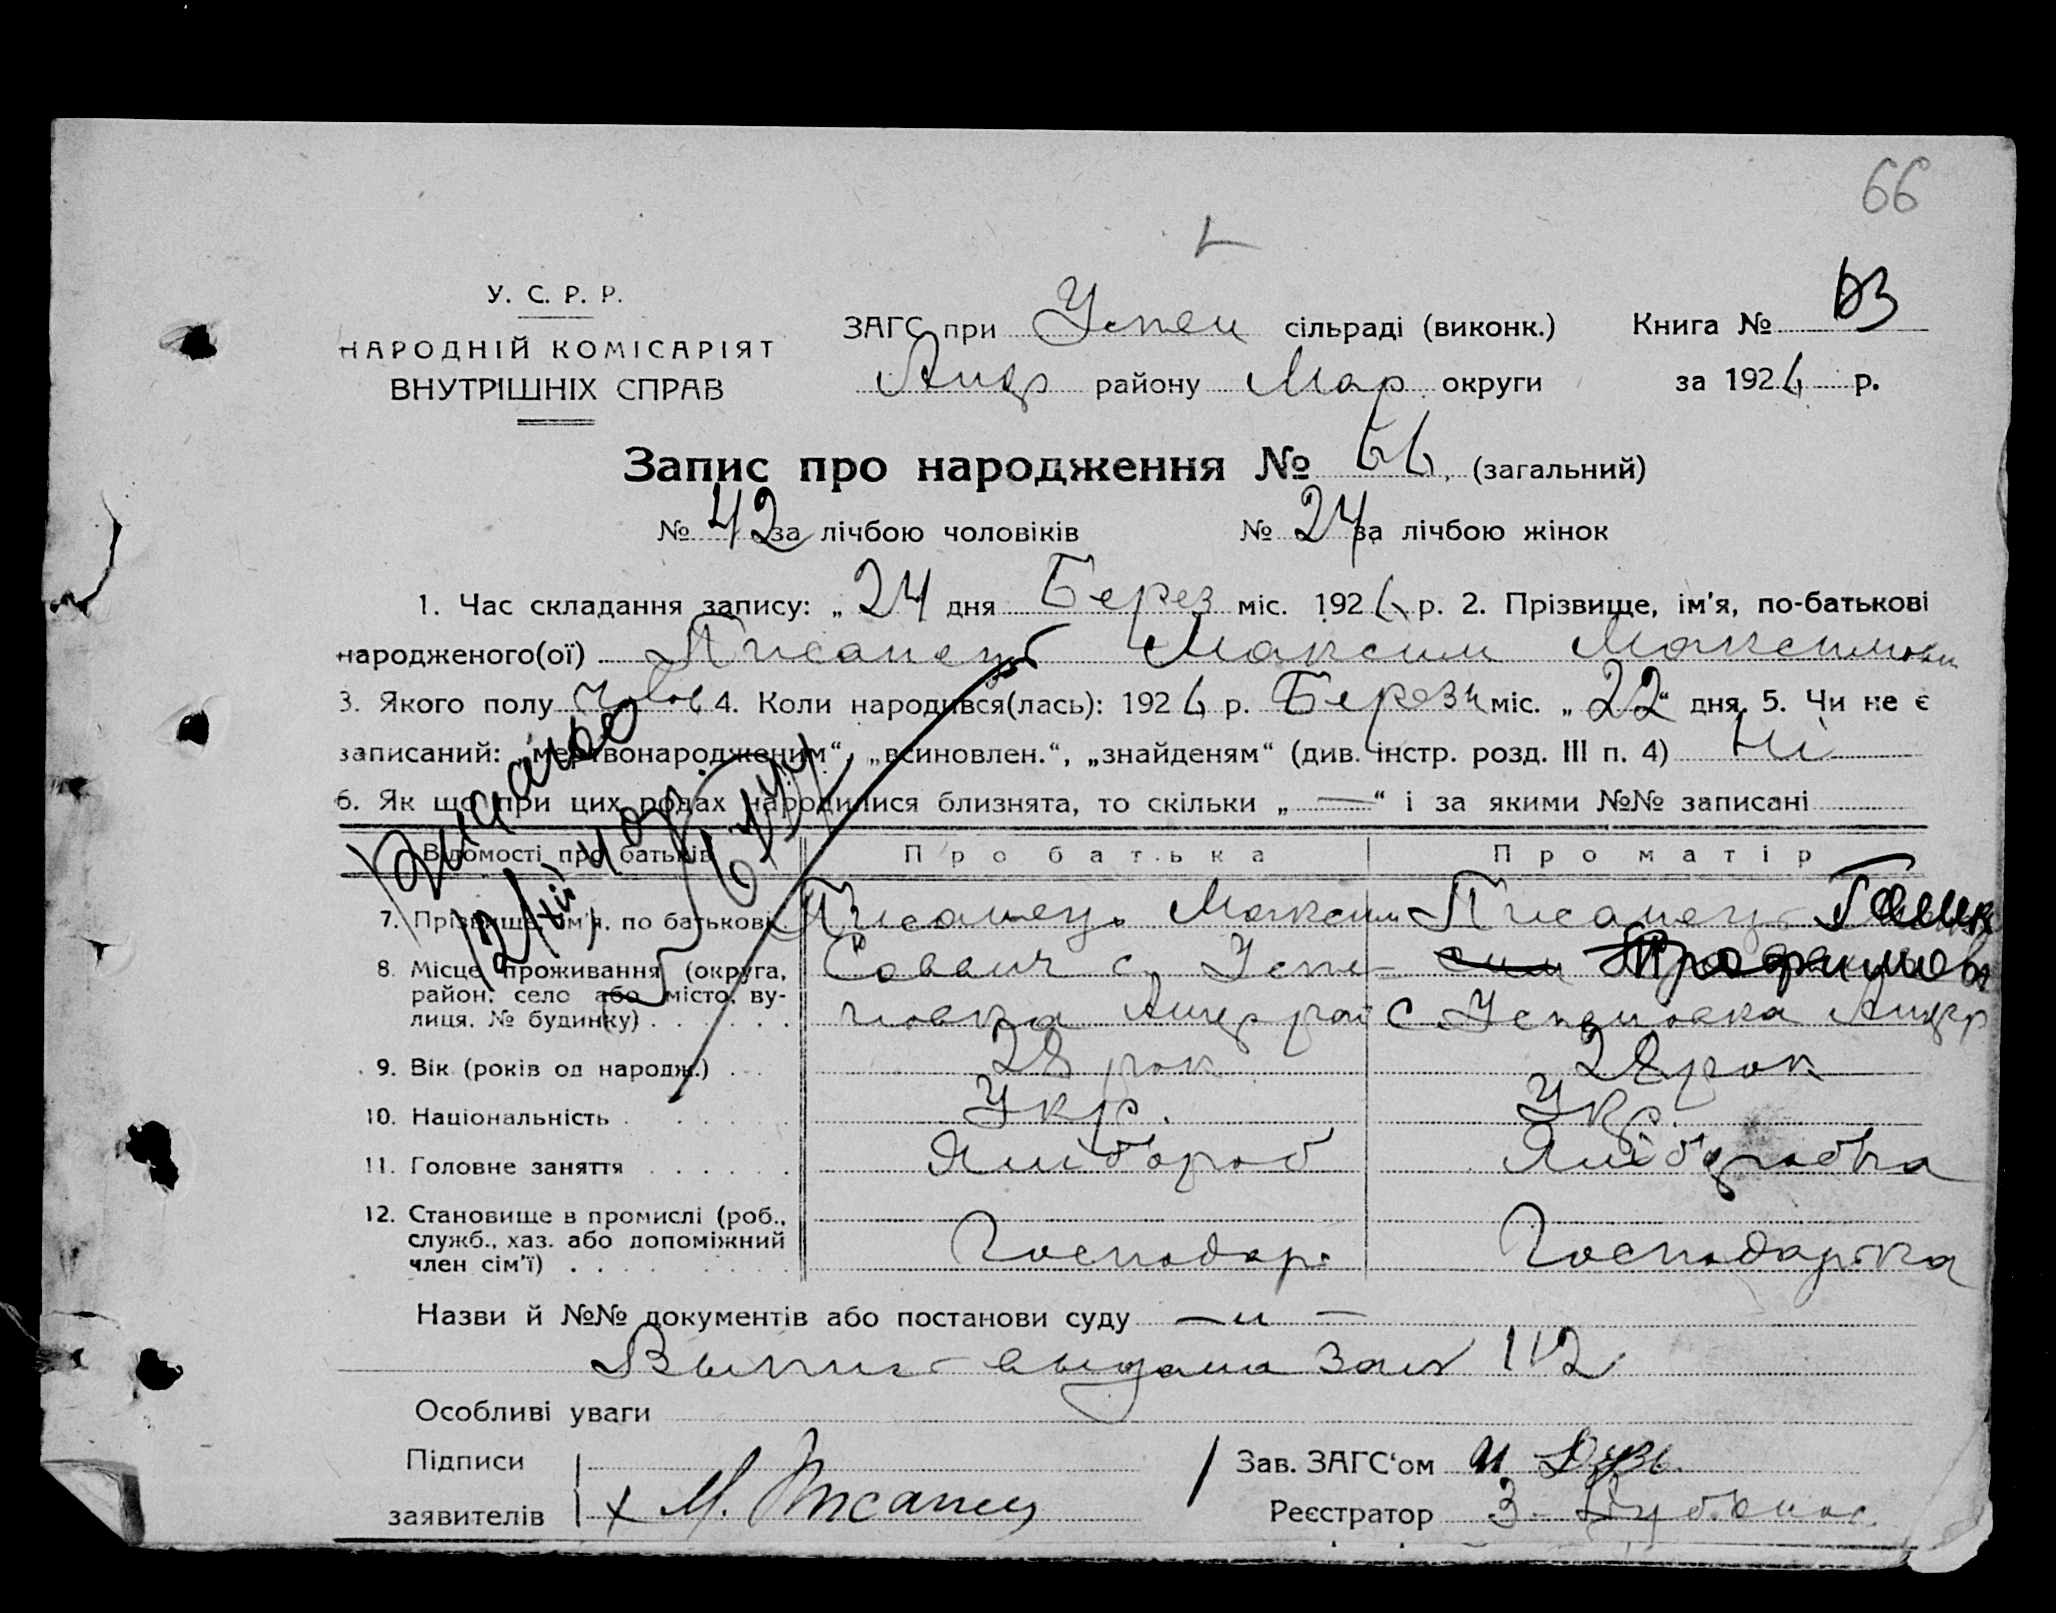 66
У. С. Р. Р.
НАРОДНІЙ КОМІСАРІЯТ
ВНУТРІШНІХ СПРАВ
ЗАГС при Успен сільраді (виконк.) Книга №
Андр району Мар округи за 1926 р.
Запис про народження № 66 (загальний)
№ 42 за лічбою чоловіків № 24 за лічбою жінок
1. Час складання запису: „ 24 дня Берез міс. 1926 р. 2. Прізвище, ім'я, по-батькові
народженого(ої) Писанець Максим Максимови
3. Якого полу чолов 4. Коли народився(лась): 1926 р. Березн міс. „ 22 " дня. 5. Чи не є
записаний: „мертвонародженим“, „всиновлен.“, „знайденям“ (див. інстр. розд. III п. 4) Ні
6. Як що при цих родах народилися близнята, то скільки „ — “ і за якими №№ записані
Відомості про батьків Про батька Про матір
7. Прізвище, ім'я, по батькові Писанець Максим Писанець
8. Місце проживання (округа, район, село або місто, вулиця, № будинку) Саввич с. Успеновка Андр рай Трофимов с Успеновка Андр р
9. Вік (років од народж.) 28 рок 28 рок
10. Національність Укр. Укр.
11. Головне заняття Хлібороб Хліборобка
12. Становище в промислі (роб., служб., хаз. або допоміжний член сім'ї) Господар Господарка
Назви й №№ документів або постанови суду — —
112
Особливі уваги
Підписи
заявителів х М. Писанец
Зав. ЗАГС'ом
Реєстратор